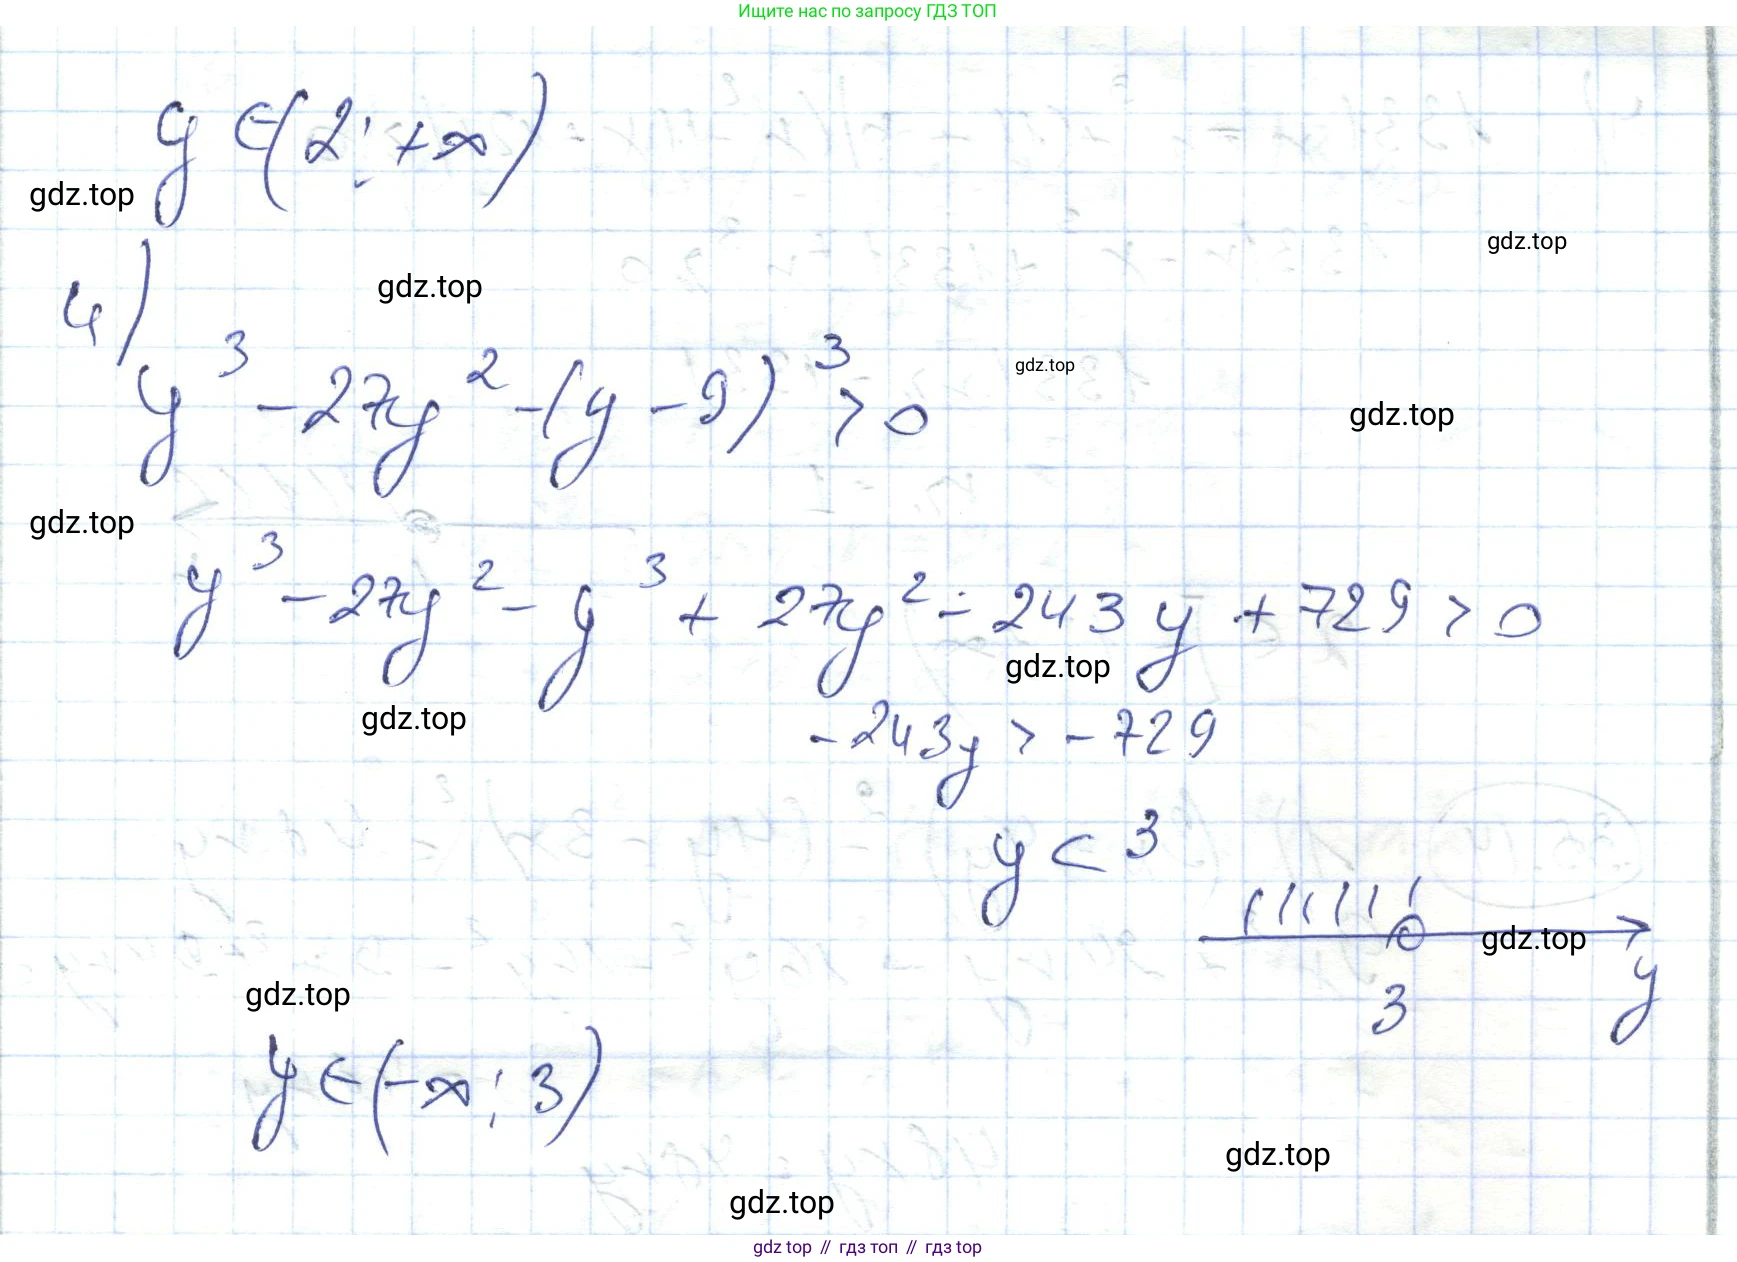 Ищите нас по запросу ГДЗ ТОП
y ∈ (2; +∞)
gdz.top
gdz.top
4)
gdz.top
y³ - 27y² - (y - 9)³ > 0
gdz.top
gdz.top
gdz.top
y³ - 27y² - y³ + 27y² - 243y + 729 > 0
gdz.top
gdz.top
-243y > -729
y < 3
gdz.top
3
y
gdz.top
y ∈ (-∞; 3)
gdz.top
gdz.top
gdz top // гдз топ // gdz top